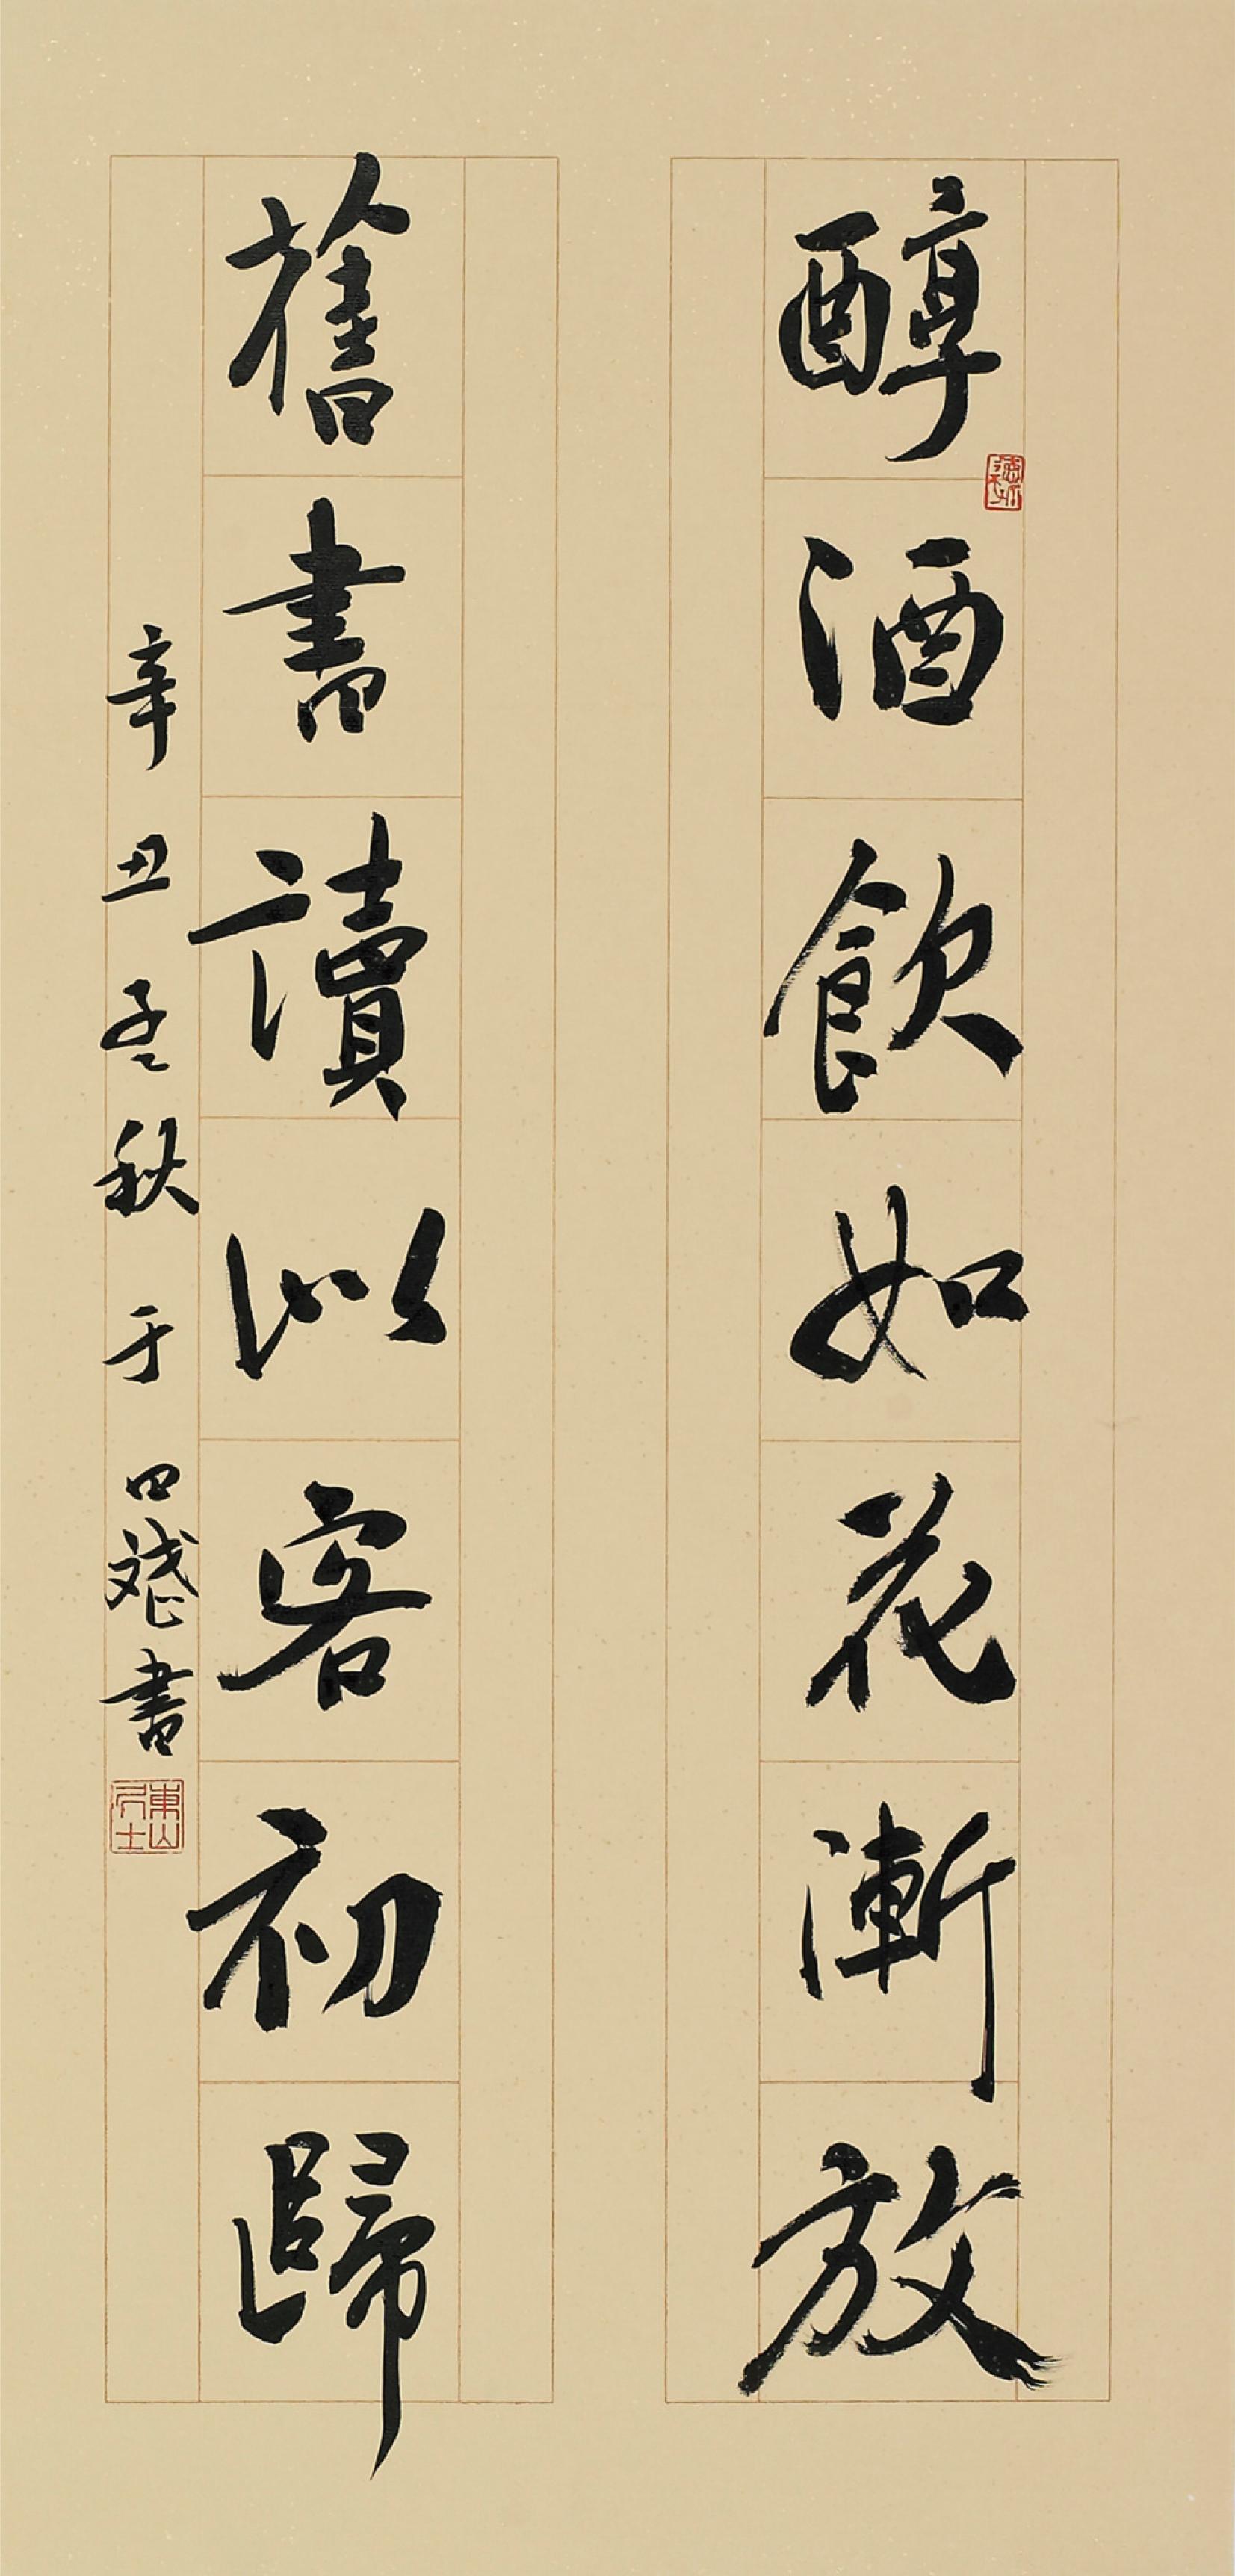 醇酒飲如花漸放
舊書讀似客初歸
辛丑孟秋于 書
東山